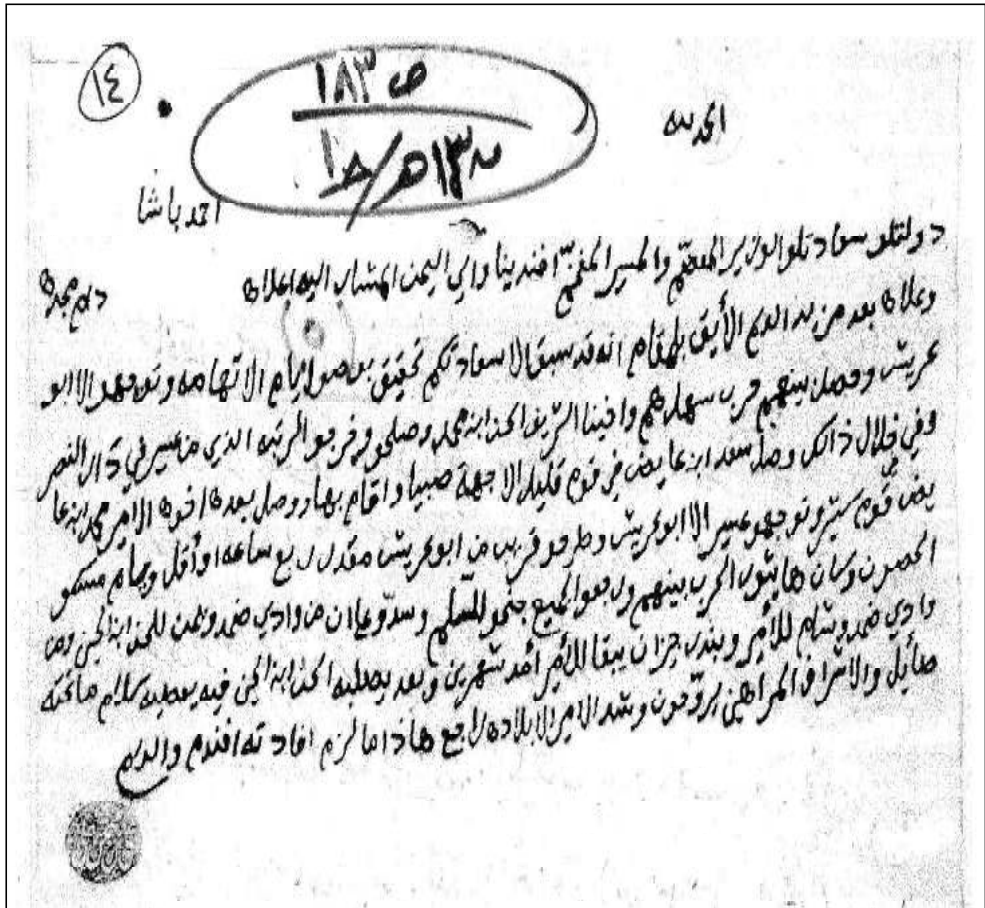 ١٤
ص ١٨٣
الحمد لله
احمد باشا
دولتلو سعادتلو الوزير المعظم والمسير المفخم افندينا والي اليمن المشار اليه اعلاه دام مجده
وعلاه بعد مزيد الدعاء الأيق بالمقام انه قد سبق الا سعادتكم تحقيق بوصول يام الا تهامه وتوجهو الا ابو
عريش وحصل بينهم حرب سهلهم وافينا الشريف الحسن ابن محمد وصلحو وخرجو الرتبه الذي من عسير في دار النصر
وفي خلال ذالك وصل سعد ابن عايض في قوم قليل الا جهة صبيا واقام بها ووصل بعده اخوه الامير محمد ابن عا
يض في قوم كثير وتوجهو عسير الا ابو عريش وطرحو قريب من ابو عريش مقدار ربع ساعه او أقل ويام مسكو
الحصون وكان هايثور الحرب بينهم ورجعوا الجميع جنحو للسلم وسدو علا ان من وادي ضمد ويمن للحسن ابن الحسين ومن
وادي ضمد وشام للأمير وبندر جيزان يبقا للأمير أمد شهرين وبعد يعطيه الحسن ابن الحسين فيه يعطيه كلام ما تحته
طائل والاشراف المراهين يروحون وشد الامير الا بلاده راجع هاذا ما لزم افادته افندم والسلام